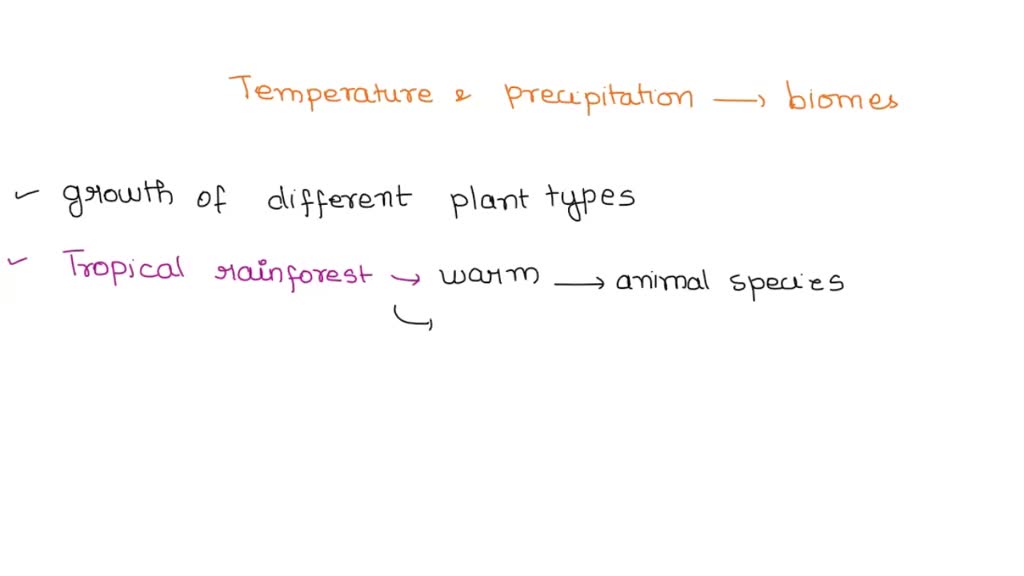 Temperature & precipitation → biomes
✓ growth of different plant types
✓ Tropical rainforest → warm → animal species